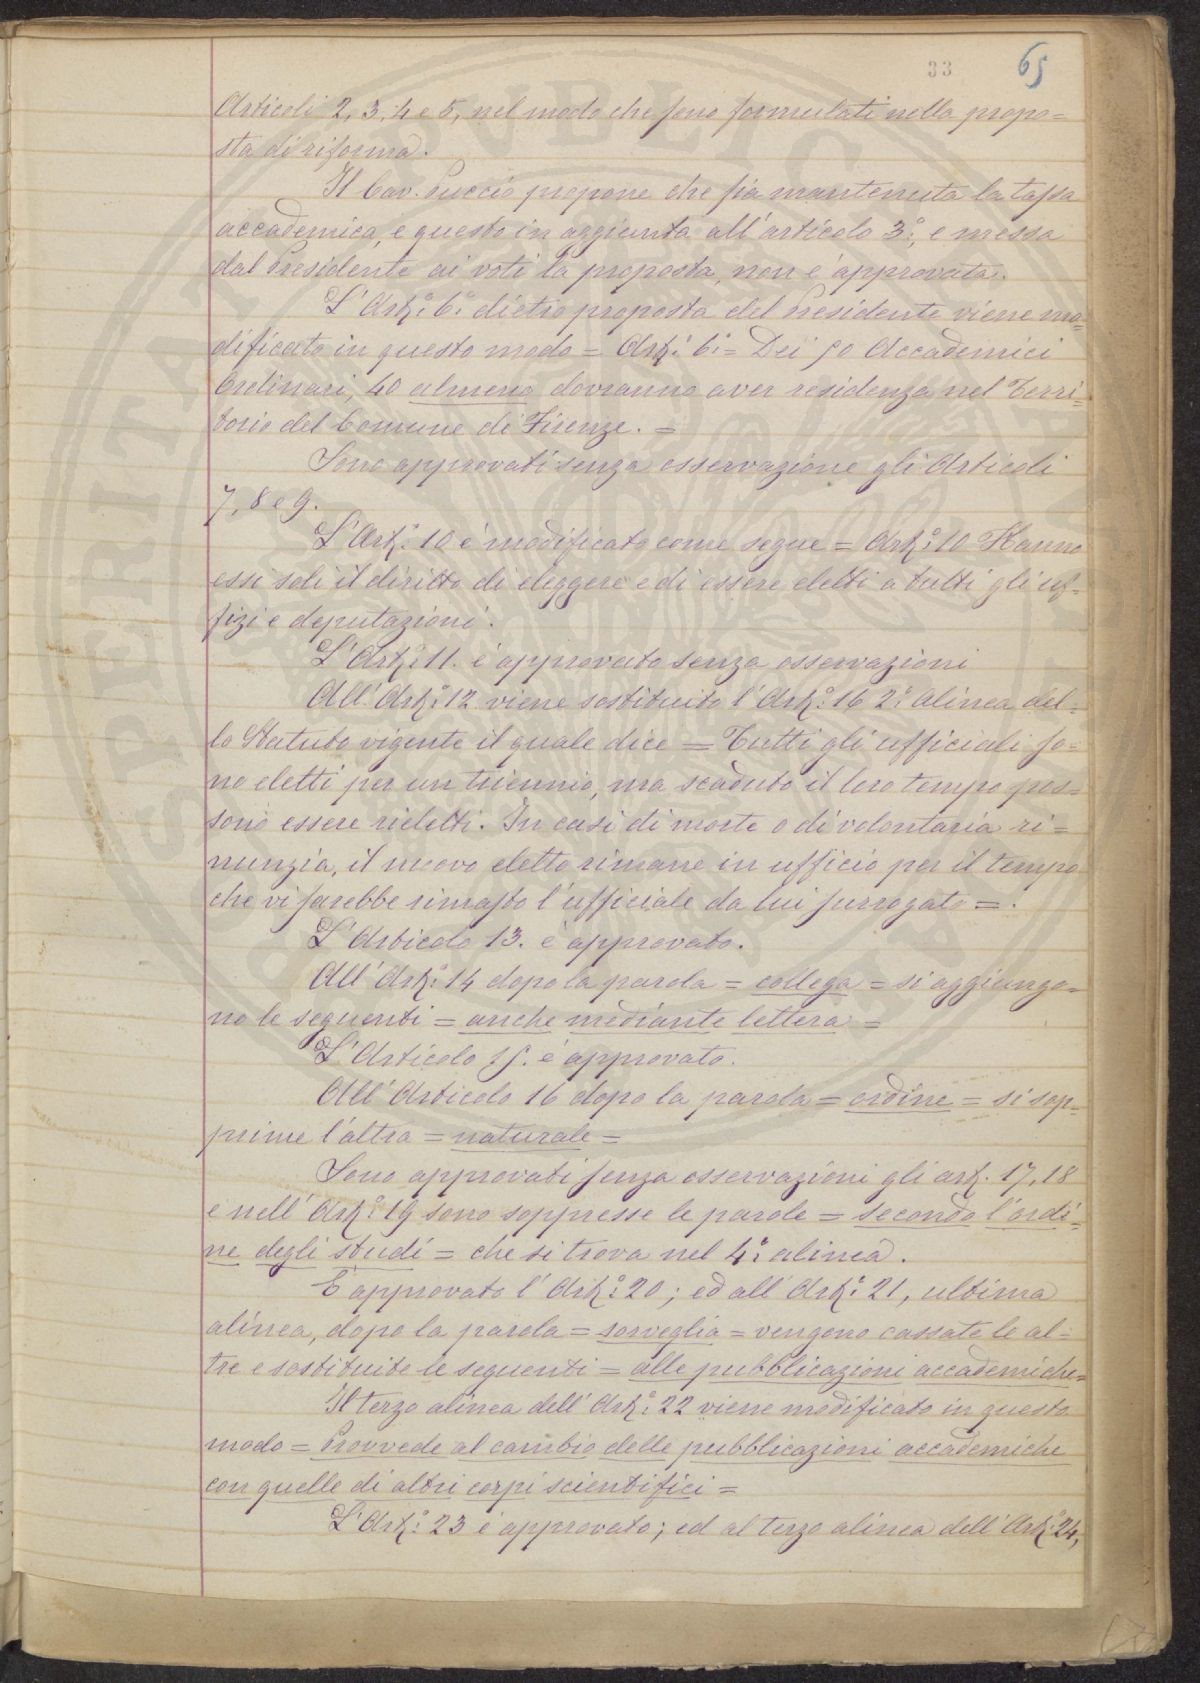 33 65
Articoli 2, 3, 4 e 5, nel modo che sono formulati nella propo=
sta di riforma.
Il Cav. Puccio propone che sia mantenuta la tassa
accademica, e questo in aggiunta all'articolo 3.°, e messa
dal Presidente ai voti la proposta, non è approvata.
L'Art.° 6.° dietro proposta del Presidente viene mo=
dificato in questo modo = Art.° 6.° = Dei 50 Accademici
Ordinari, 40 almeno dovranno aver residenza nel Terri=
torio del Comune di Firenze. =
Sono approvati senza osservazione gli Articoli
7, 8 e 9.
L'Art.° 10 è modificato come segue = Art.° 10 Hanno
essi soli il diritto di eleggere e di essere eletti a tutti gli uf=
fizi e deputazioni.
L'Art.° 11. è approvato senza osservazioni
All'Art.° 12 viene sostituito l'Art.° 16 2.° alinea del=
lo Statuto vigente il quale dice = Tutti gli ufficiali so=
no eletti per un triennio, ma scaduto il loro tempo pos=
sono essere rieletti. In casi di morte o di volontaria ri=
nunzia, il nuovo eletto rimane in ufficio per il tempo
che vi sarebbe rimasto l'ufficiale da lui surrogato =.
L'Articolo 13. è approvato.
All'Art.° 14 dopo la parola = collega = si aggiungo=
no le seguenti = anche mediante lettera =
L'Articolo 15. è approvato.
All'Articolo 16 dopo la parola = ordine = si sop=
prime l'altra = naturale =
Sono approvati senza osservazioni gli art. 17, 18
e nell'Art.° 19 sono soppresse le parole = secondo l'ordi=
ne degli studi = che si trova nel 4.° alinea.
È approvato l'Art.° 20; ed all'Art.° 21, ultima
alinea, dopo la parola = sorveglia = vengono cassate le al=
tre e sostituite le seguenti = alle pubblicazioni accademiche=
Il terzo alinea dell'Art.° 22 viene modificato in questo
modo = Provvede al cambio delle pubblicazioni accademiche
con quelle di altri corpi scientifici =
L'Art.° 23 è approvato; ed al terzo alinea dell'Art.° 24,